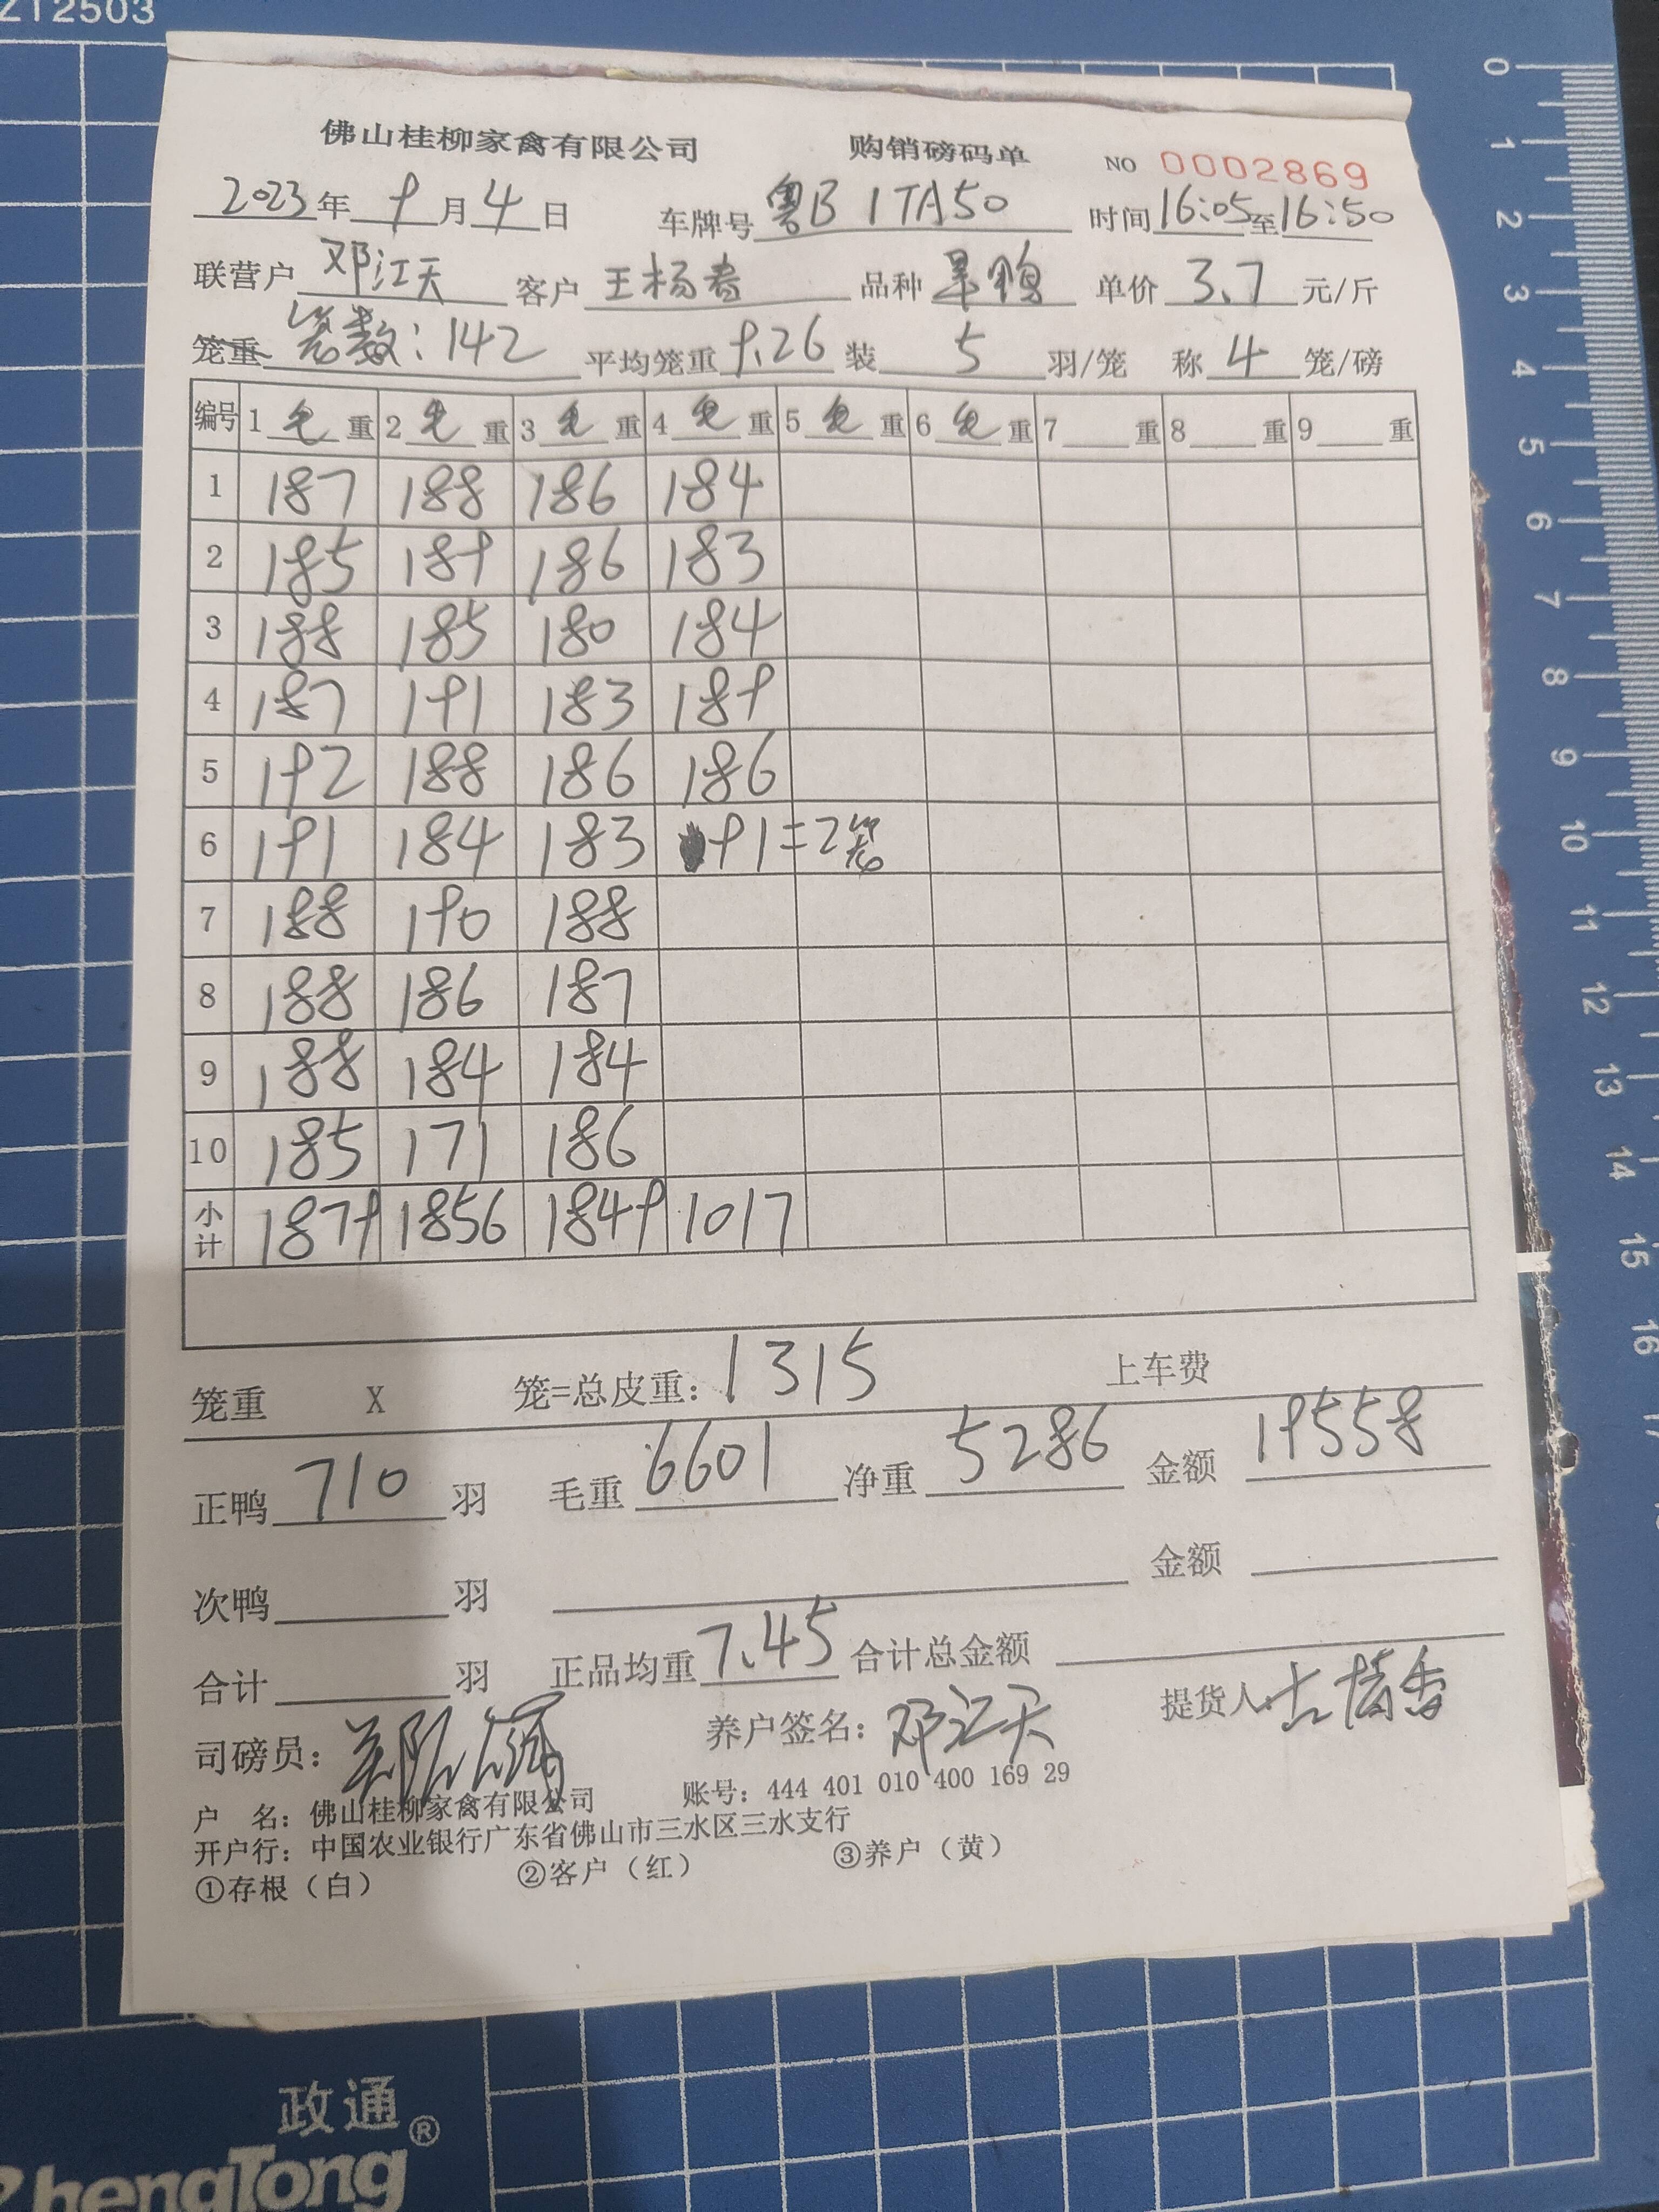 ZT2503
佛山桂柳家禽有限公司 购销磅码单 NO 0002869
2023年9月4日 车牌号 粤B 1TA50 时间16:05至16:50
联营户 邓江天 客户 王杨春 品种 旱鸭 单价 3.7 元/斤
笼重 笼数:142 平均笼重 9.26 装 5 羽/笼 称 4 笼/磅
编号 1 毛 重 2 毛 重 3 毛 重 4 毛 重 5 毛 重 6 毛 重 7 重 8 重 9 重
1 187 188 186 184
2 185 189 186 183
3 188 185 180 184
4 187 191 183 189
5 192 188 186 186
6 191 184 183 91=2笼
7 188 190 188
8 188 186 187
9 188 184 184
10 185 171 186
小计 1879 1856 1849 1017
笼重 X 笼=总皮重: 1315 上车费
正鸭 710 羽 毛重 6601 净重 5286 金额 19558
次鸭 羽 金额
合计 羽 正品均重 7.45 合计总金额
司磅员: 养户签名: 邓江天 提货人
户 名: 佛山桂柳家禽有限公司 账号: 444 401 010 400 169 29
开户行: 中国农业银行广东省佛山市三水区三水支行
①存根(白) ②客户(红) ③养户(黄)
0 1 2 3 4 5 6 7 8 9 10 11 12 13 14 15 16
政通®
ZhengTong